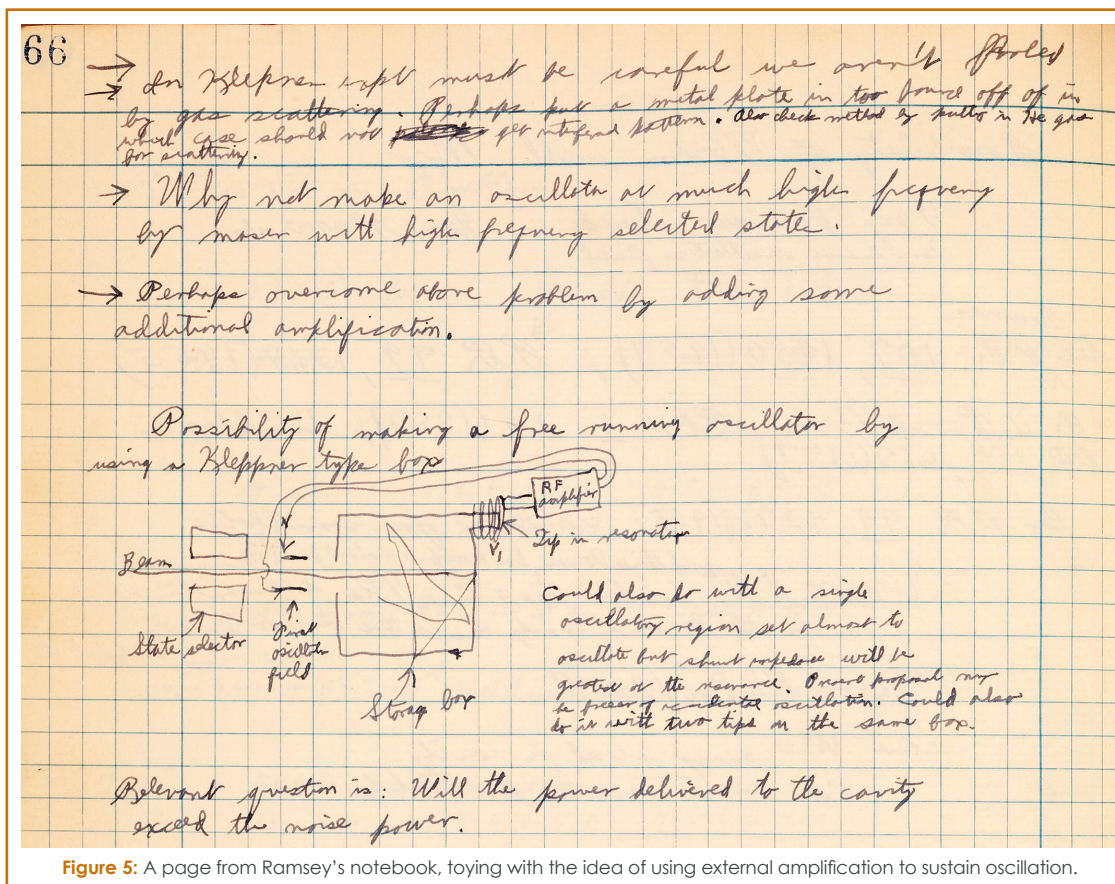 66
→ In Kleppner expt must be careful we aren't fooled
→ by gas scattering. Perhaps put a metal plate in too bounce off of in
which case should not get interfered pattern. Also check method by putting in He gas
for scattering.
→ Why not make an oscillator at much high frequency
by maser with high frequency selected state.
→ Perhaps overcome above problem by adding some
additional amplification.
Possibility of making a free running oscillator by
using a Kleppner type box
RF
amplifier
Tip in resonator
V
V₁
Beam
State selector
First
oscillatory
field
Storage box
Could also do with a single
oscillatory region set almost to
oscillate but shunt impedance will be
greatest at the resonance. Present proposal may
be freer of accidental oscillation. Could also
do it with two tips on the same box.
Relevant question is: Will the power delivered to the cavity
exceed the noise power.
Figure 5: A page from Ramsey's notebook, toying with the idea of using external amplification to sustain oscillation.